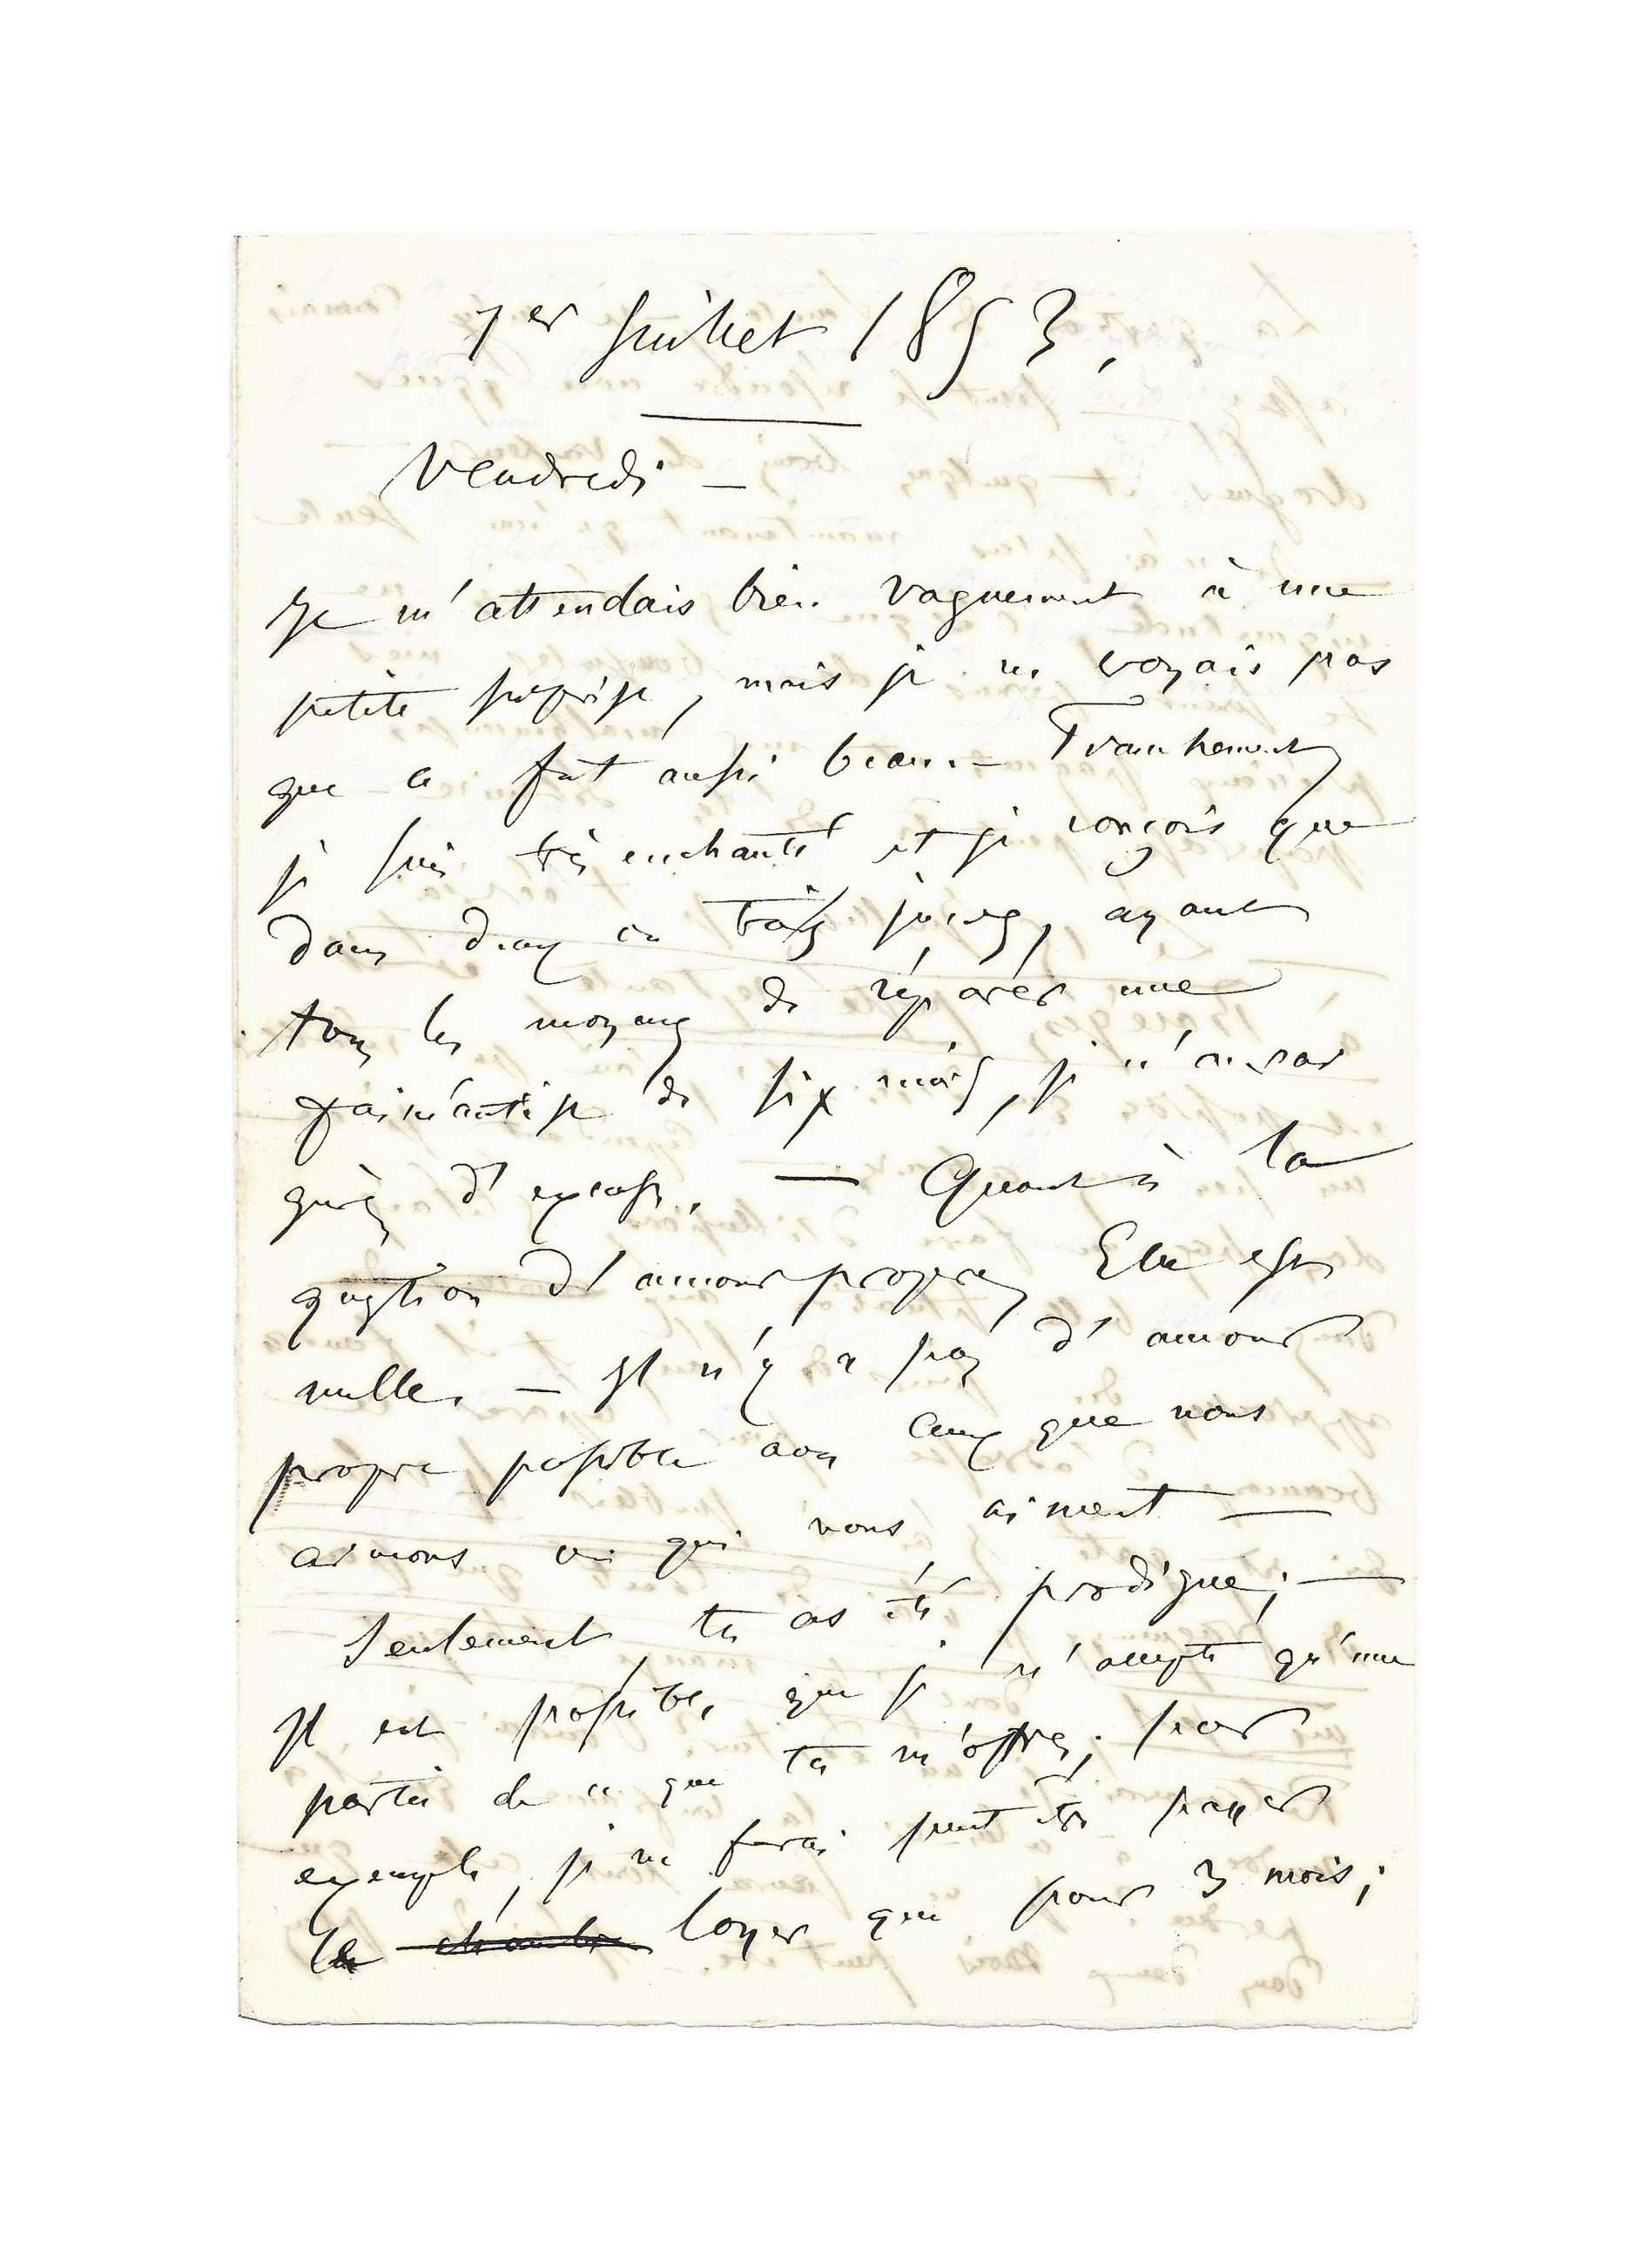 1er Juillet 1853.
Vendredi –
Je m'attendais bien vaguement à une
petite surprise, mais je ne croyais pas
que ce fût aussi beau. – Franchement
je suis très enchanté et je conçois que
dans deux ou trois jours, ayant
tous les moyens de réparer une
fainéantise de six mois, je n'aurai
guères d'excuses. — Quant à la
question d'amour propre, Elle est
nulle. – Il n'y a pas d'amour
propre possible avec ceux que nous
aimons ou qui nous aiment —
Seulement tu as été prodigue; —
Il est possible que je n'accepte qu'une
partie de ce que tu m'offres; par
exemple, je ne ferai peut être payer
le chambre loyer que pour 3 mois;